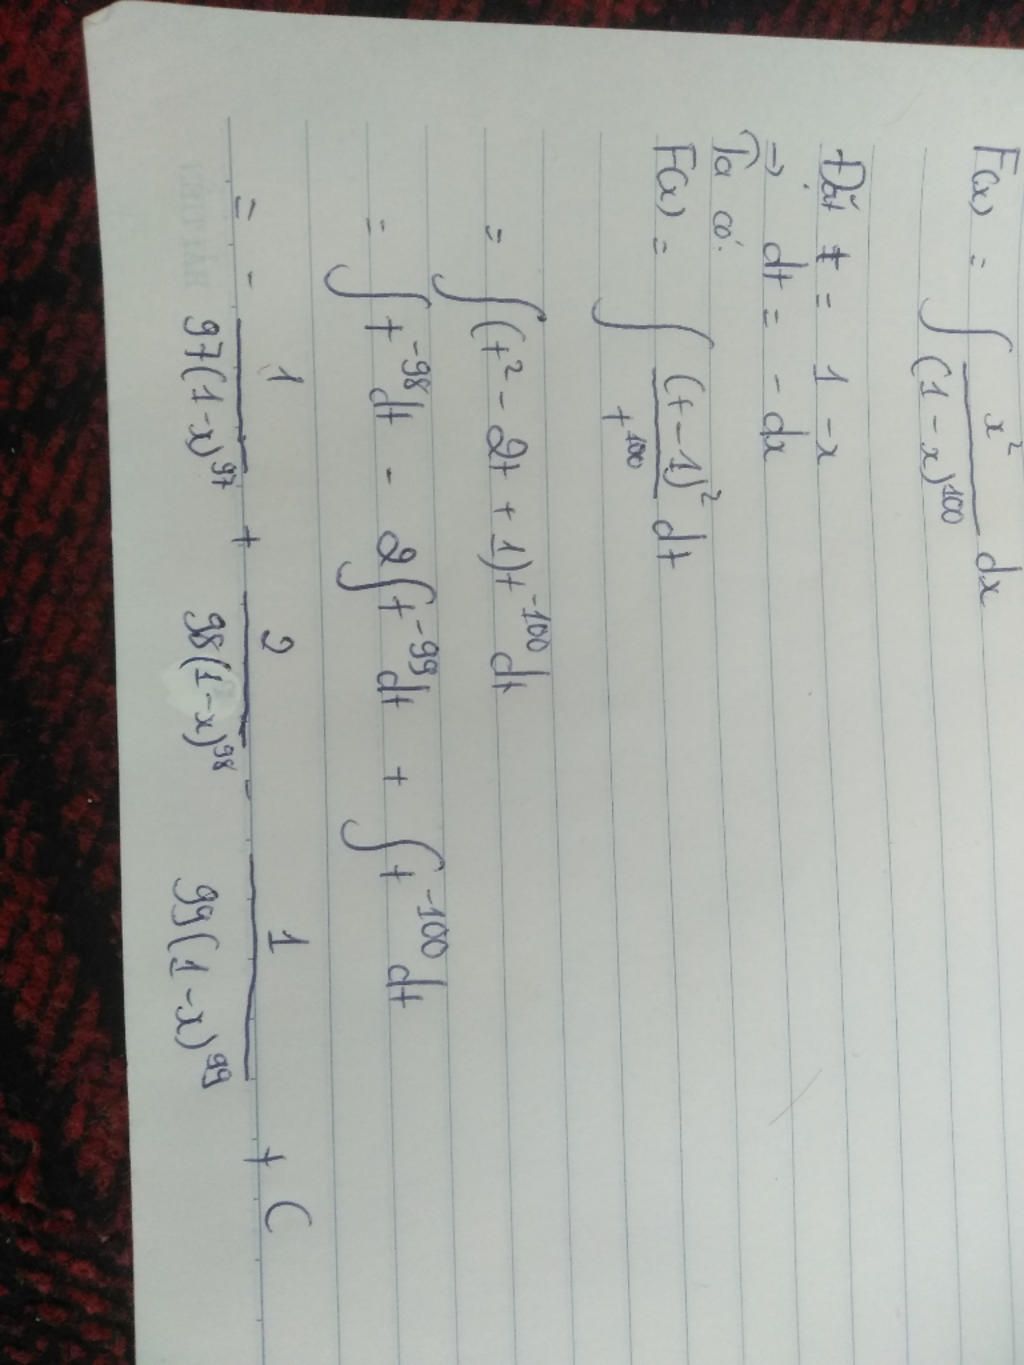 F(x) = ∫ x² / (1 - x)¹⁰⁰ dx
Đặt t = 1 - x
⇒ dt = - dx
Ta có:
F(x) = ∫ (t - 1)² / t¹⁰⁰ dt
= ∫ (t² - 2t + 1) t⁻¹⁰⁰ dt
= ∫ t⁻⁹⁸ dt - 2 ∫ t⁻⁹⁹ dt + ∫ t⁻¹⁰⁰ dt
= - 1 / 97(1 - x)⁹⁷ + 2 / 98(1 - x)⁹⁸ - 1 / 99(1 - x)⁹⁹ + C